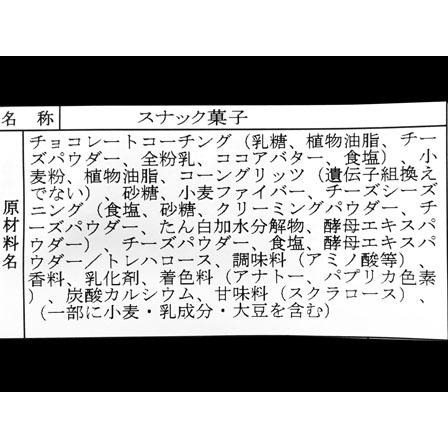 名 称 スナック菓子
原材料名
チョコレートコーチング（乳糖、植物油脂、チー
ズパウダー、全粉乳、ココアバター、食塩）、小
麦粉、植物油脂、コーングリッツ（遺伝子組換え
でない）、砂糖、小麦ファイバー、チーズシーズ
ニング（食塩、砂糖、クリーミングパウダー、チ
ーズパウダー、たん白加水分解物、酵母エキスパ
ウダー）、チーズパウダー、食塩、酵母エキスパ
ウダー／トレハロース、調味料（アミノ酸等）、
香料、乳化剤、着色料（アナトー、パプリカ色素
）、炭酸カルシウム、甘味料（スクラロース）、
（一部に小麦・乳成分・大豆を含む）